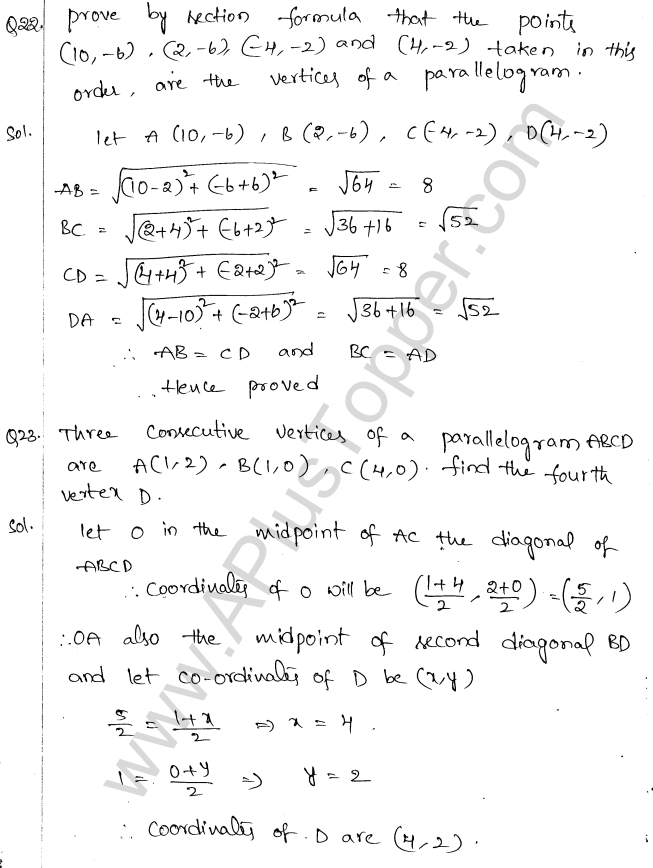 Q22. prove by section formula that the points
(10,-6), (2,-6), (-4,-2) and (4,-2) taken in this
order, are the vertices of a parallelogram.
Sol. let A (10,-6), B (2,-6), C(-4,-2), D(4,-2)
AB = √((10-2)² + (-6+6)²) = √64 = 8
BC = √((2+4)² + (-6+2)²) = √(36+16) = √52
CD = √((4+4)² + (-2+2)²) = √64 = 8
DA = √((4-10)² + (-2+6)²) = √(36+16) = √52
∴ AB = CD and BC = AD
∴ Hence proved
Q23. Three consecutive vertices of a parallelogram ABCD
are A(1,2), B(1,0), C(4,0). find the fourth
vertex D.
Sol. let O in the midpoint of AC the diagonal of
ABCD
∴ Coordinates of O will be ((1+4)/2, (2+0)/2) = (5/2, 1)
∴ OA also the midpoint of second diagonal BD
and let co-ordinates of D be (x,y)
5/2 = (1+x)/2 ⇒ x = 4.
1 = (0+y)/2 ⇒ y = 2
∴ Coordinates of D are (4,2).
www.APlusTopper.com